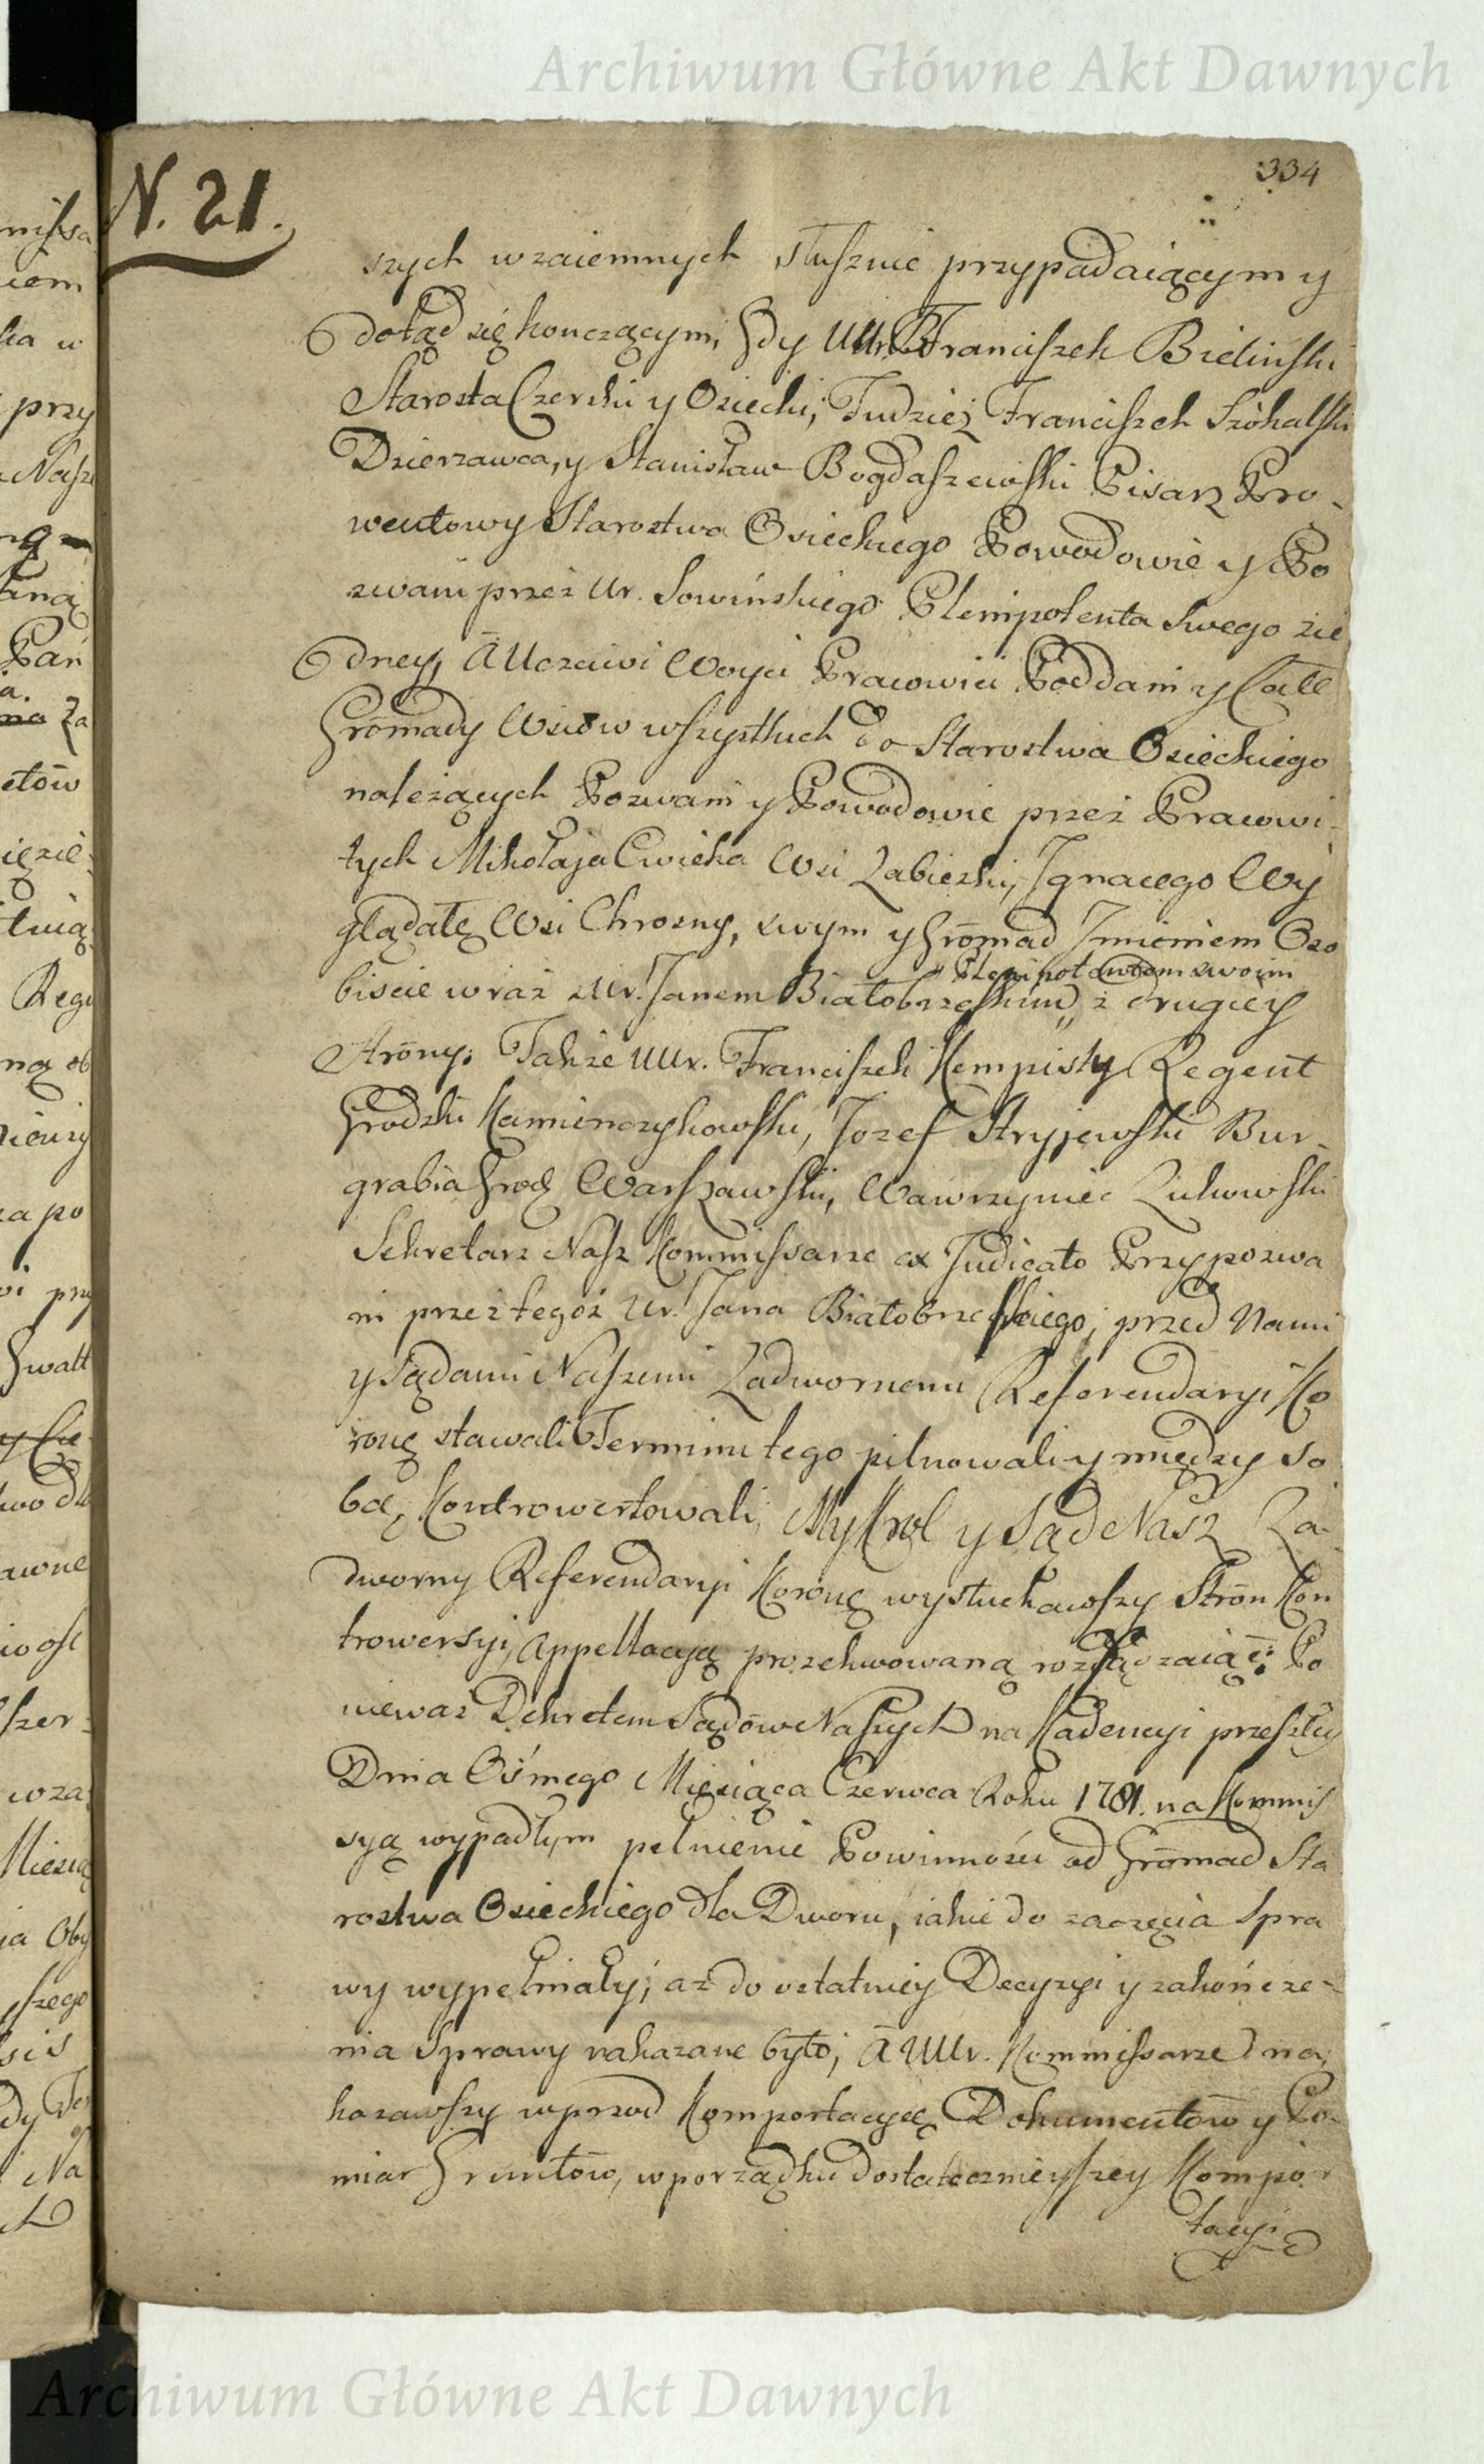 Archiwum Główne Akt Dawnych
334
N. 21.
szych wzaiemnych słusznie przypadaiącym y
dotąd się kończącym, Gdy UUr. Franciszek Bieliński
Starosta Czerski y Osiecki, Tudzież Franciszek Szóhalski
Dzierzawca, y Stanisław Bogdaszewski Pisarz Pro-
wentowy Starostwa Osieckiego Powodowie y Po
zwani przez Ur. Sowińskiego Plenipotenta swego zie
dney, A Uczciwi Woyci Pracowici Poddani y Całe
Gromady Wsiow wszystkich do Starostwa Osieckiego
należących Pozwani y Powodowie przez Pracowi-
tych Mikołaja Cwieka Wsi Zabieżki, Ignacego Wy
glądałę Wsi Chrosny, swym y Gromad Imieniem Oso
Plenipotentem swoim
biscie wraz z Ur. Janem Białobrzeskim z drugiey
Strony. Takze UUr. Franciszek Kempisty Regent
Grodzki Kamienczykowski, Jozef Stryjewski Bur-
grabia Grodz Warszawski, Wawrzyniec Zukowski
Sekretarz Nasz Kommissarze ex Judicato Przypozwa
ni przez tegoż Ur. Jana Białobrzeskiego, przed Nami
y Sądami Naszemi Zadwornemi Referendaryi Ko
ronę stawali Terminu tego pilnowali y między so
bą, Kontrowertowali, My Krol y Sąd Nasz Za-
dworny Referendaryi Koronę wysłuchawszy Stron Kon
trowersyi, Appellacyą prozekwowaną rozsądzaiąc: Po
niewaz Dekretem Sądów Naszych na Kadencyi przeszłey
Dnia Osmego Miesiąca Czerwca Roku 1781. na Kommis
syą wypadłym pełnienie Powinnosci od Gromad Sta
rostwa Osieckiego dla Dworu, iakie do zaczęcia Spra
wy wypełniały, az do ostatniey Decyzyi y zakończe-
nia Sprawy nakazane było, A UUr. Kommissarze na
kazawszy wprzod Komportacyą Dokumentow y Po-
miar Gruntow, w porządku dostatecznieyszey Kompor
tacyi
Archiwum Główne Akt Dawnych